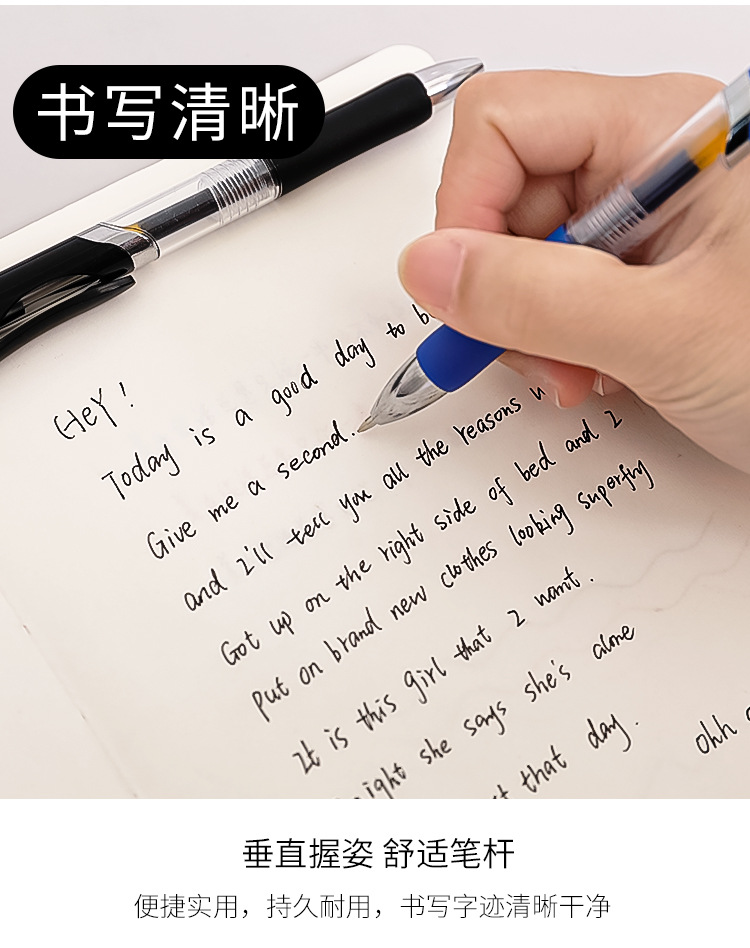 书写清晰
HeY!
Today is a good day to b
Give me a second.
and I'll tell you all the reasons
Got up on the right side of bed and I
put on brand new clothes looking superfly
It is this girl that I want.
ight she says she's alone
t that day.
ohh
垂直握姿 舒适笔杆
便捷实用，持久耐用，书写字迹清晰干净